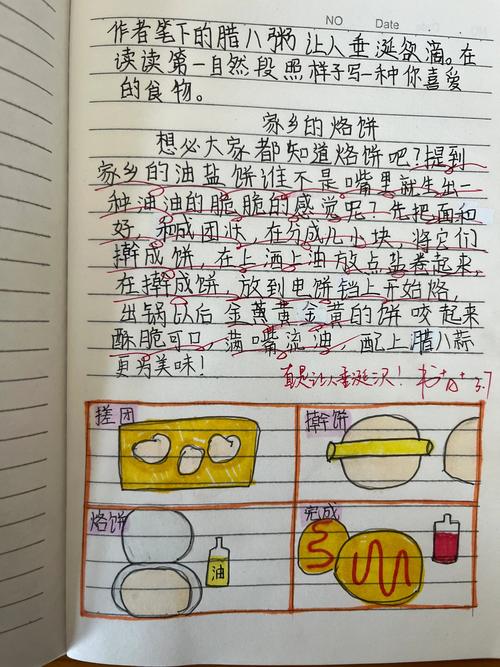 NO Date
作者笔下的腊八粥让人垂涎欲滴。在
读读第一自然段照样子写一种你喜爱
的食物。
家乡的烙饼
想必大家都知道烙饼吧?提到
家乡的油盐饼谁不是嘴里就生出一
种油油的脆脆的感觉呢?先把面和
好,和成团状,在分成几小块,将它们
擀成饼,在上洒上油放点盐卷起来,
在擀成饼,放到电饼铛上开始烙,
出锅以后金黄黄金黄的饼咬起来
酥脆可口,满嘴流油,配上腊八蒜
更为美味!
真是让人垂涎三尺!
3.7
搓团
擀饼
烙饼
油
完成